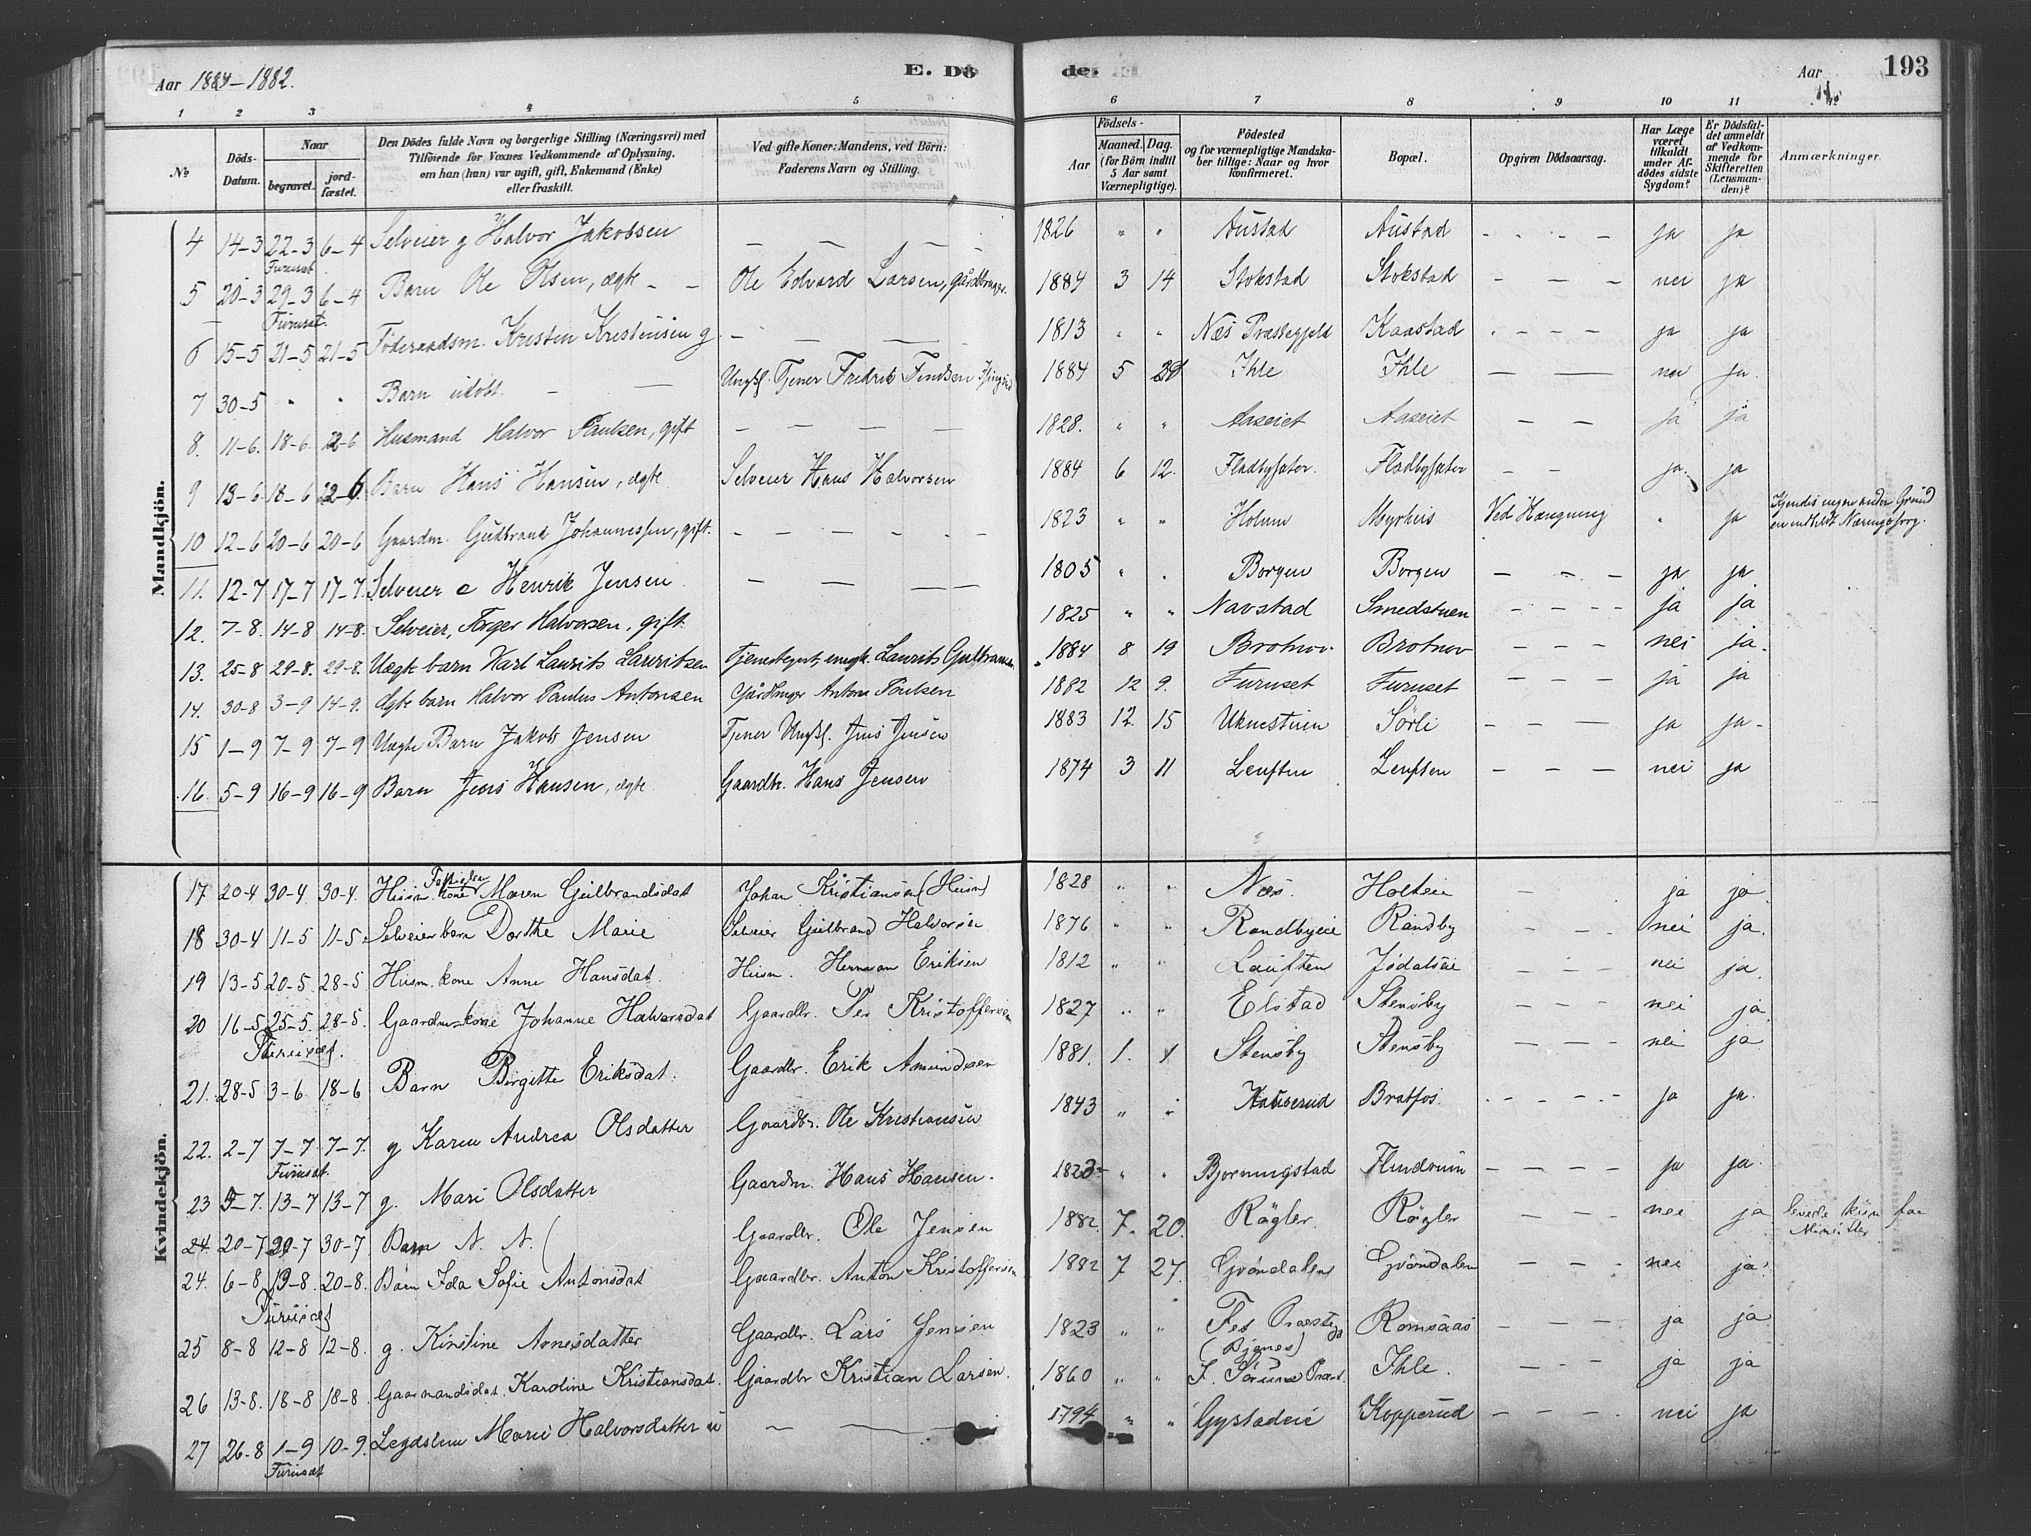 Aar 1884-1882.
E. Dö
de.
Aar
193
1 2 3 4 5 6 7 8 9 10 11 12
No
Döds-Datum.
Naar
begravet.
jord-fæstet.
Den Dödes fulde Navn og borgerlige Stilling (Næringsvei) med
Tilföiende for Voxnes Vedkommende af Oplysning,
om han (hun) var ugift, gift, Enkemand (Enke)
eller fraskilt.
Ved gifte Koner: Mandens, ved Börn:
Faderens Navn og Stilling.
Födsels-
Aar
Maaned. Dag.
(for Börn indtil
5 Aar samt
Værnepligtige).
Födested
og for værnepligtige Mandska-
ber tillige: Naar og hvor
konfirmeret.
Bopæl.
Opgiven Dödsaarsag.
Har Læge
været
tilkaldt
under Af-
dødes sidste
Sygdom?
Er Dödsfal-
det anmeldt
af Vedkom-
mende for
Skifteretten
(Lensman-
den)?
Anmærkninger.
Mandkjön.
4 14-3 22-3 6-4 Selveier g Halvor Jakobsen — — — — 1826 " " Austad Austad - - - - ja ja
Furuset
5 20-3 29-3 6-4 Barn Ole Olsen, ægte - - Ole Edvard Larsen, gårdbruger 1884 3 14 Stokstad Stokstad - - - nei ja
Furuset
6 15-5 21-5 21-5 Föderaadsm. Kristen Kristensen g - — — 1813 " " Næs Præstegjeld Kaastad - - - - ja ja
7 30-5 " " Barn udöbt. - — Ungk. Tjener Fredrik Findsen 1884 5 29 Ihle Ihle — — — nei ja.
8. 11-6. 18-6. 22-6 Husmand Halvor Paulsen, gift — — — — 1828. " " Aaseiet Aaseiet — — ja ja
9 13-6 18-6 22-6 Barn Hans Hansen, ægte Selveier Hans Halvorsen 1884 6 12. Fladbysæter. Fladbysæter — — ja. ja
10 12-6 20-6 20-6 Gaardm. Gudbrand Johannessen, gift. - - - - - 1823 " " Holum Myrhus Ved Hængning " ja Kjendes ingen anden Grund
en indbildt Næringssorg.
11. 12-7 17-7 17-7. Selveier e Henrik Jensen — — — — 1805 " " Borgen Borgen — — - ja ja
12. 7-8. 14-8 14-8. Selveier, Torger Halvorsen, gift. 1825 " " Navstad Smedstuen - - - - ja ja
13. 25-8 29-8. 29-8. Uægte barn Karl Laurits Lauritsen Tjenestegut, ungk. Laurits Gulbransen 1884 8 19 Brotnov. Brotnov - - - - nei ja.
14. 30-8 3-9 14-9. ægte barn Halvor Paulus Antonsen Gårdbruger Anton Paulsen 1882 12 9. Furuset Furuset - - - - ja ja
15 1-9 7-9 7-9 Uægte Barn Jakob Jensen Tjener Ungk. Jens Jensen 1883 12. 15 Uknestuen Sörli - - — ja ja-
16. 5-9 16-9 16-9 Barn Jens Hansen, ægte Gaardbr. Hans Jensen 1874 3 11 Leuften Leuften — — — nei ja
Kvindekjön.
17 20-4 30-4. 30-4. Husm. kone Maren Gulbrandsdat Johan Kristiansen (Husm) 1828 " " Næs. Holteie - ja ja.
18 30-4 11-5 11-5. Selveier barn Dorthe Marie Selveier Gulbrand Halvorsen 1876 " " Randbyeie Randby - - - nei ja.
19 13-5 20-5. 28-5 Husm. kone Anne Hansdat Husm. Herman Eriksen 1812 " " Lauften Jødalseie - - - nei ja.
20 16-5 25-5. 28-5. Gaardm. kone Johanne Halvorsdat Gaardbr. Per Kristoffersen 1827 " " Elstad Stensby - - — nei ja.
Furuset.
21. 28-5 3-6 18-6 Barn Birgitte Eriksdat. Gaardbr. Erik Amundsen 1881. 1. 4 Stensby Stensby — — — nei ja
22. 2-7 7-7 7-7. g Karen Andrea Olsdatter Gaardbr. Ole Kristiansen 1843 " " Kauserud Bratfos - - - - - ja ja.
Furuset
23 5-7. 13-7 13-7 g. Mari Olsdatter Gaardm. Hans Hansen. 1823 " " Bjorningstad Flindrum - - - - ja ja.
24. 20-7 29-7 30-7 Barn N. N. Gaardbr. Ole Jensen 1882. 7. 20. Rögler. Rögler - - - nei ja levede kun faa
Minutter
24. 6-8. 13-8. 20-8. Barn Ida Sofie Antonsdat Gaardbr. Anton Kristoffersen 1882 7 27. Gröndalen Gröndalen - - - nei ja.
Furuset
25 8-8 12-8 12-8. g. Kirstine Arnesdatter Gaardbr. Lars Jensen 1823 " " Fet Præstegj. Romsaas - - - - ja ja
26 13-8. 18-8 18-8. Gaarmandsdat. Karoline Kristiansdat. Gaardbr Kristian Larsen. 1860 " " Ihle. - - - ja ja
27 26-8 1-9 10-9. Legdslem Marie Halvorsdatter u — — — 1794 " " Gystadeie Kopperud - - - - nei ja
Furuset